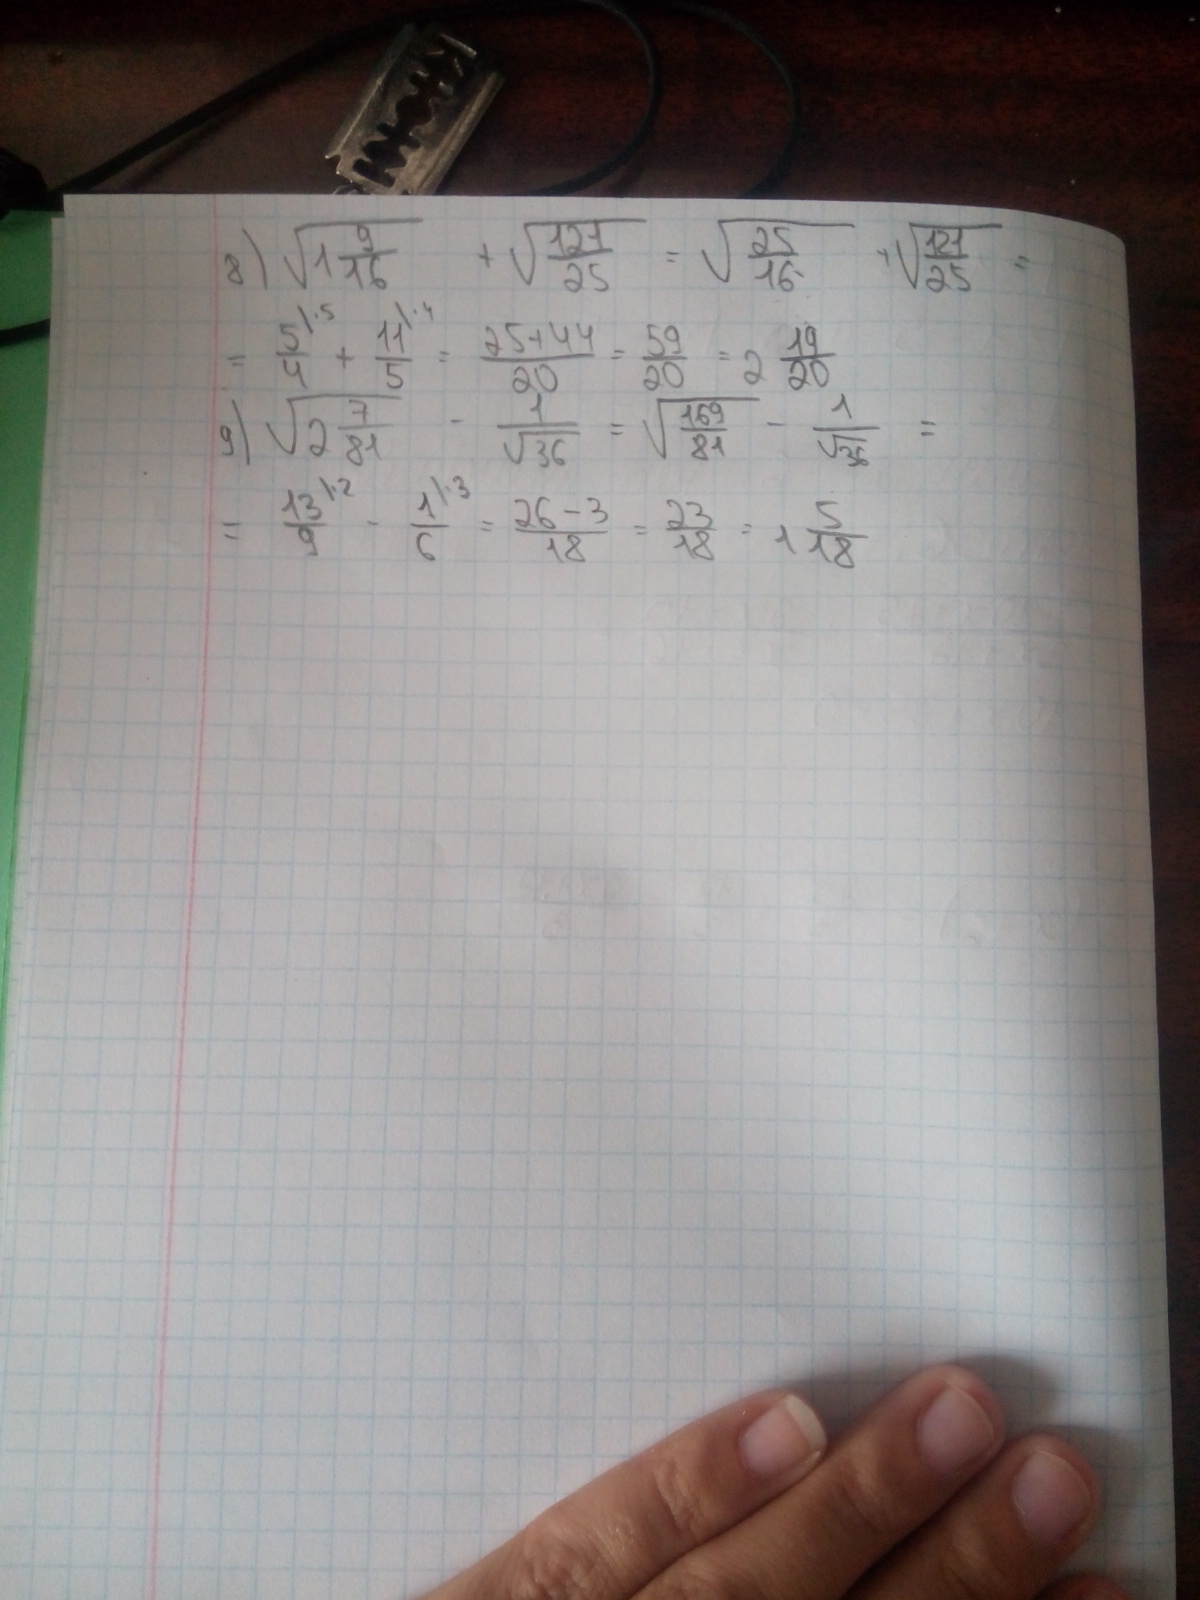 8) √(1 9/16) + √(121/25) = √(25/16) + √(121/25) =
= 5/4 \·5 + 11/5 \·4 = (25+44)/20 = 59/20 = 2 19/20
9) √(2 7/81) - 1/√36 = √(169/81) - 1/√36 =
= 13/9 \·2 - 1/6 \·3 = (26-3)/18 = 23/18 = 1 5/18